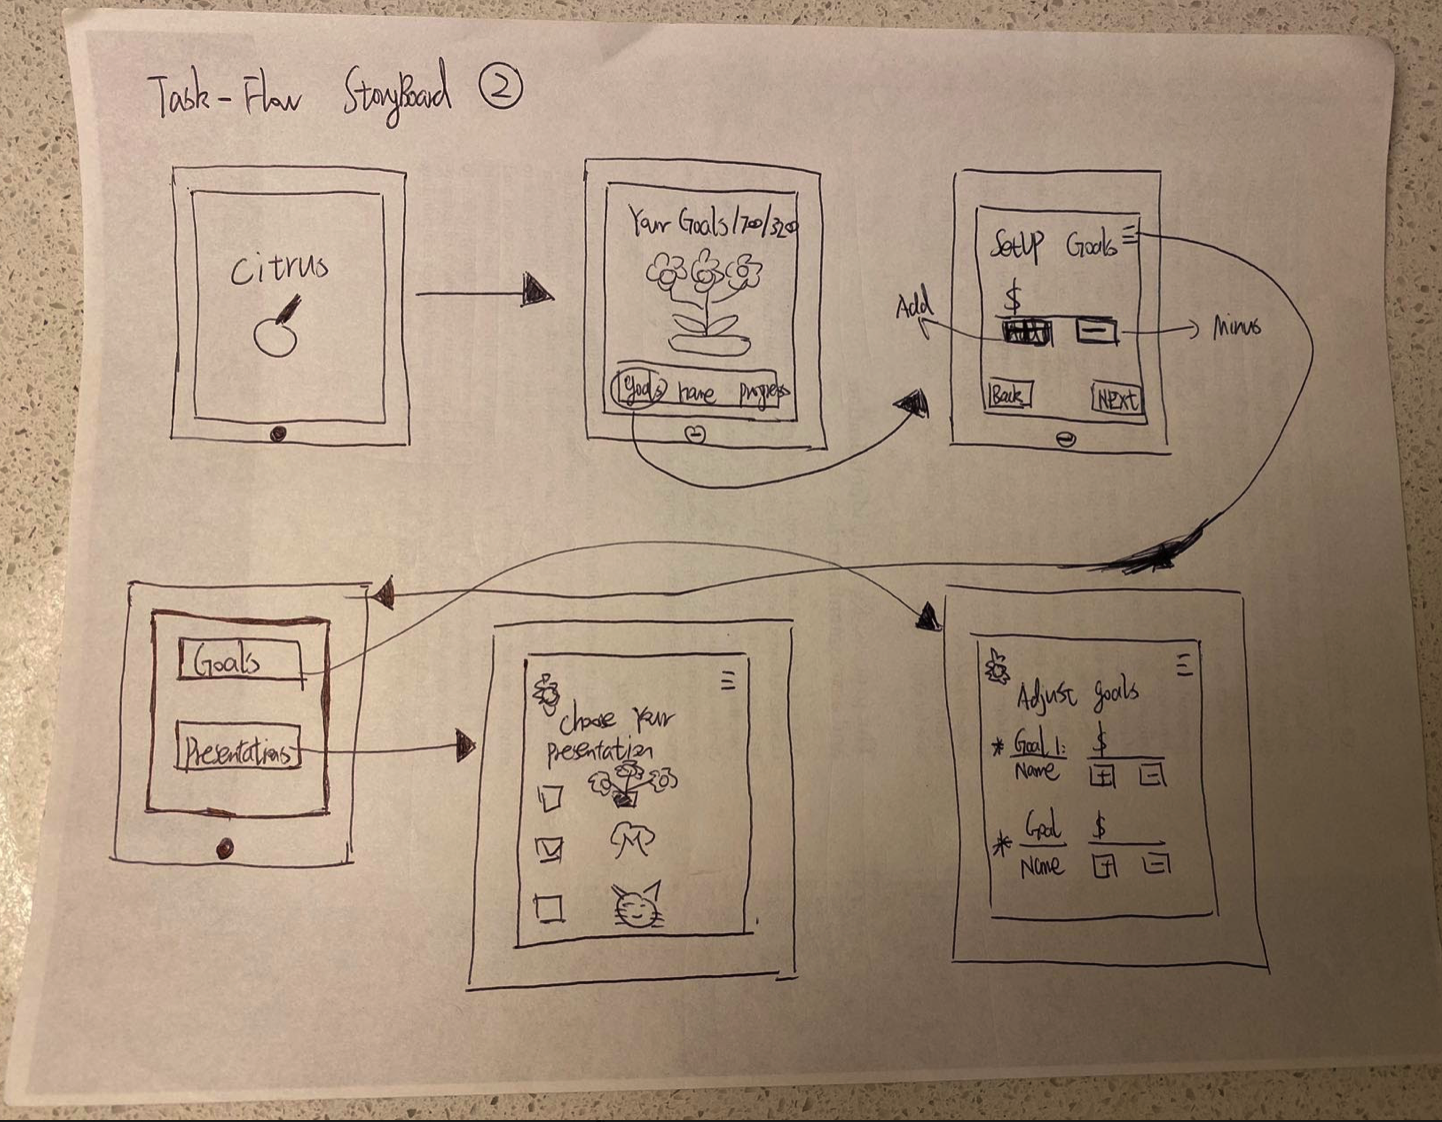 Task-Flow StoryBoard ②
Citrus
Your Goals/700/3200
goals home progress
SetUP Goals
$
Add
Minus
Back
NEXT
Goals
Presentations
Choose Your
Presentation
Adjust goals
* Goal 1: $
Name + -
* Goal $
Name + -